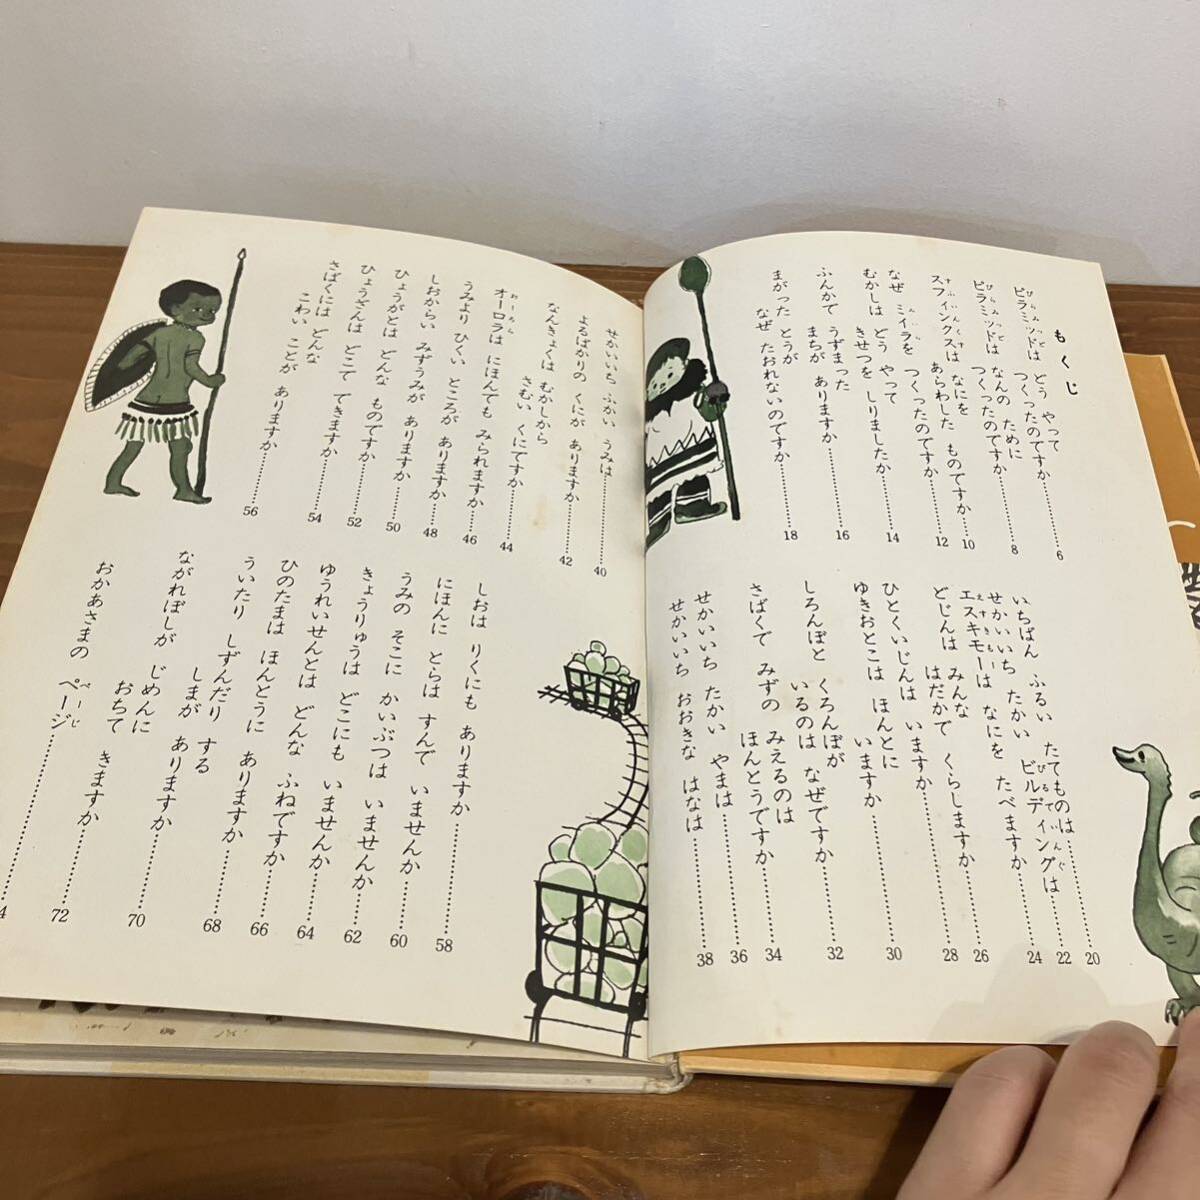 もくじ
ピラミッドは どう やって
つくったのですか 6
ピラミッドは なんの ために
つくったのですか 8
スフィンクスは なにを
あらわした ものですか 10
なぜ ミイラを つくったのですか 12
むかしは どう やって
きせつを しりましたか 14
ふんかで うずまった
まちが ありますか 16
まがった とうが
なぜ たおれないのですか 18
いちばん ふるい たてものは 20
せかいいち たかい ビルディングは 22
エスキモーは なにを たべますか 24
どじんは みんな
はだかで くらしますか 26
ひとくいじんは いますか 28
ゆきおとこは ほんとに
いますか 30
しろんぼと くろんぼが
いるのは なぜですか 32
さばくで みずの みえるのは
ほんとうですか 34
せかいいち たかい やまは 36
せかいいち おおきな はなは 38
せかいいち ふかい うみは 40
よるばかりの くにが ありますか 42
なんきょくは むかしから
さむい くにですか 44
オーロラは にほんでも みられますか 46
うみより ひくい ところが ありますか 48
しおからい みずうみが ありますか 50
ひょうがとは どんな ものですか 52
ひょうざんは どこで できますか 54
さばくには どんな
こわい ことが ありますか 56
しおは りくにも ありますか 58
にほんに とらは すんで いませんか 60
うみの そこに かいぶつは いませんか 62
きょうりゅうは どこにも いませんか 64
ゆうれいせんとは どんな ふねですか 66
ひのたまは ほんとうに ありますか 68
ういたり しずんだり する
しまが ありますか 70
ながれぼしが じめんに
おちて きますか 72
おかあさまの ページ